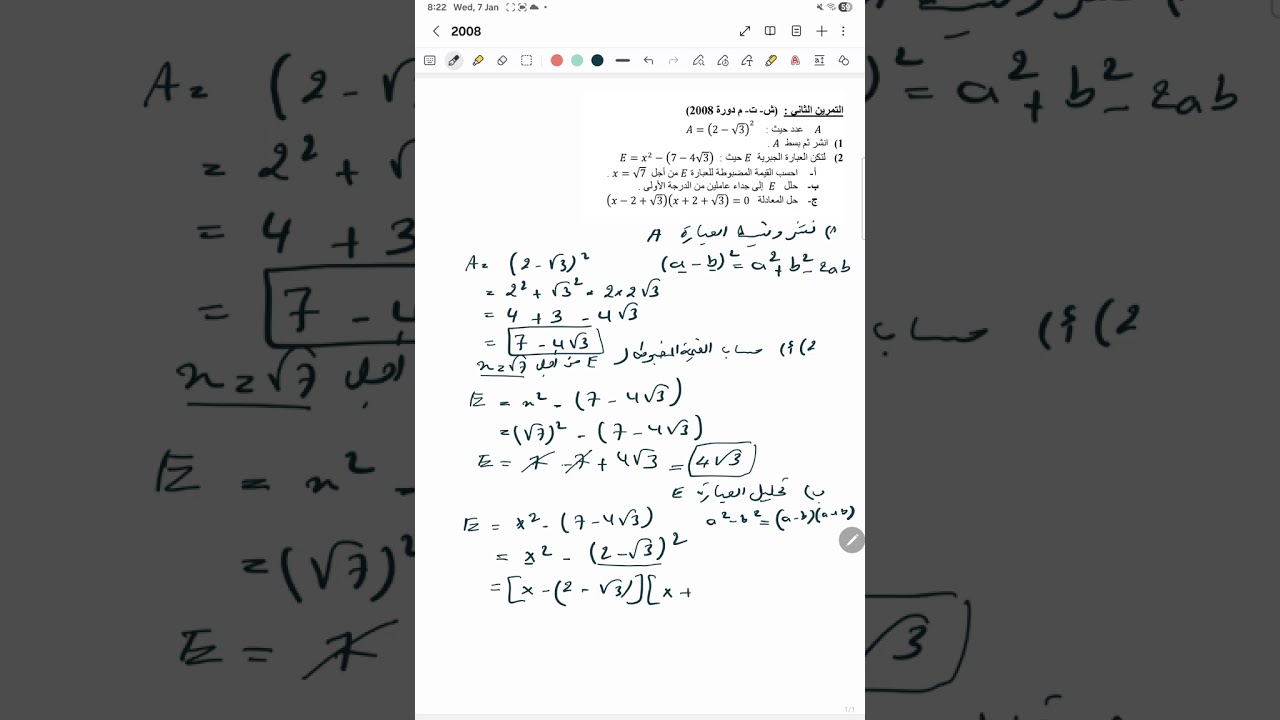 8:22 Wed, 7 Jan
59
2008
التمرين الثاني : (ش- ت- م دورة 2008)
A عدد حيث : A = (2 − √3)²
1) انشر ثم بسط A .
2) لتكن العبارة الجبرية E حيث : E = x² − (7 − 4√3)
أ- احسب القيمة المضبوطة للعبارة E من أجل x = √7 .
ب- حلل E إلى جداء عاملين من الدرجة الأولى .
ج- حل المعادلة (x − 2 + √3)(x + 2 + √3) = 0
1) نشر وتبسيط العبارة A
A = (2 - √3)²
(a - b)² = a² + b² - 2ab
= 2² + √3² - 2×2√3
= 4 + 3 - 4√3
= 7 - 4√3
2) أ) حساب القيمة المضبوطة لـ
E من أجل x = √7
E = x² - (7 - 4√3)
= (√7)² - (7 - 4√3)
E = 7 - 7 + 4√3 = 4√3
ب) تحليل العبارة E
E = x² - (7 - 4√3)
a² - b² = (a - b)(a + b)
= x² - (2 - √3)²
= [x - (2 - √3)][x +
1/1